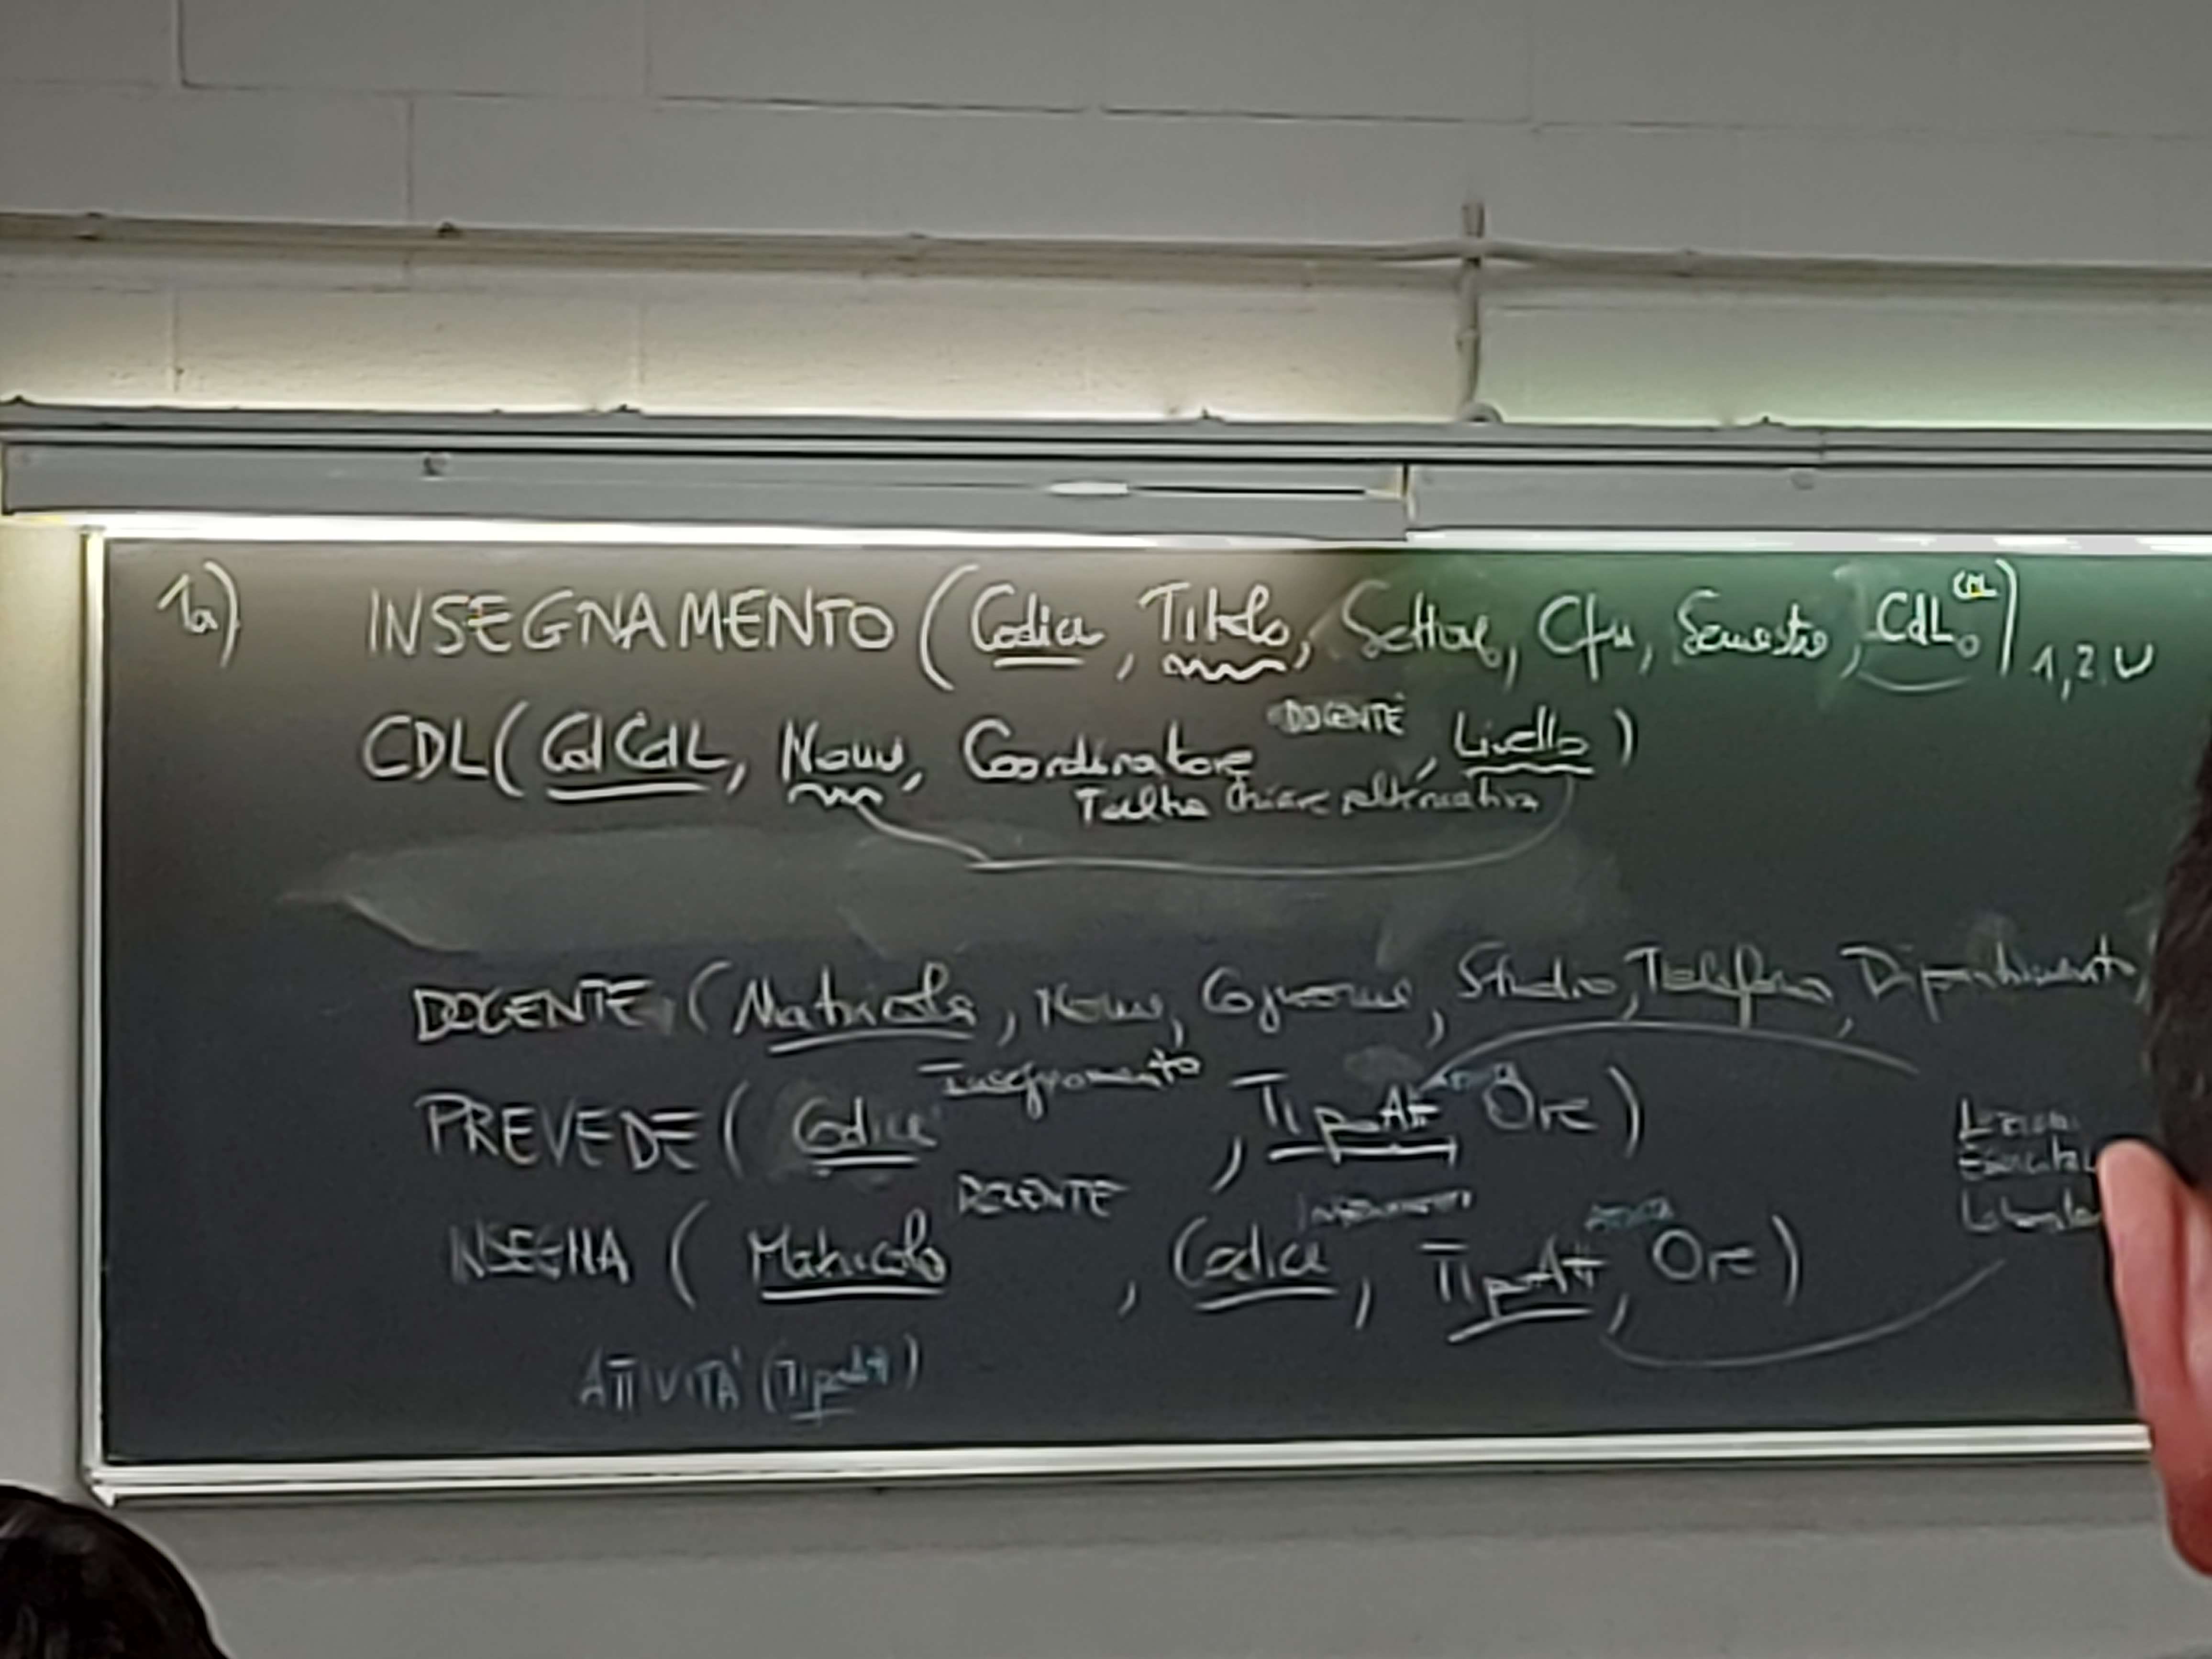 1a) INSEGNAMENTO (Codice, Titolo, Settore, Cfu, Semestre, CdL₀ CDL) 1,2,U
CDL (CodCdL, Nome, Coordinatore DOCENTE, Livello)
chiave alternativa
DOCENTE (Matricola, Nome, Cognome, Studio, Telefono, Dipartimento,
PREVEDE (Codice Insegnamento, TipoAtt Ore)
INSEGNA (Matricola DOCENTE, Codice, TipoAtt, Ore)
ATTIVITÀ (TipoAtt)